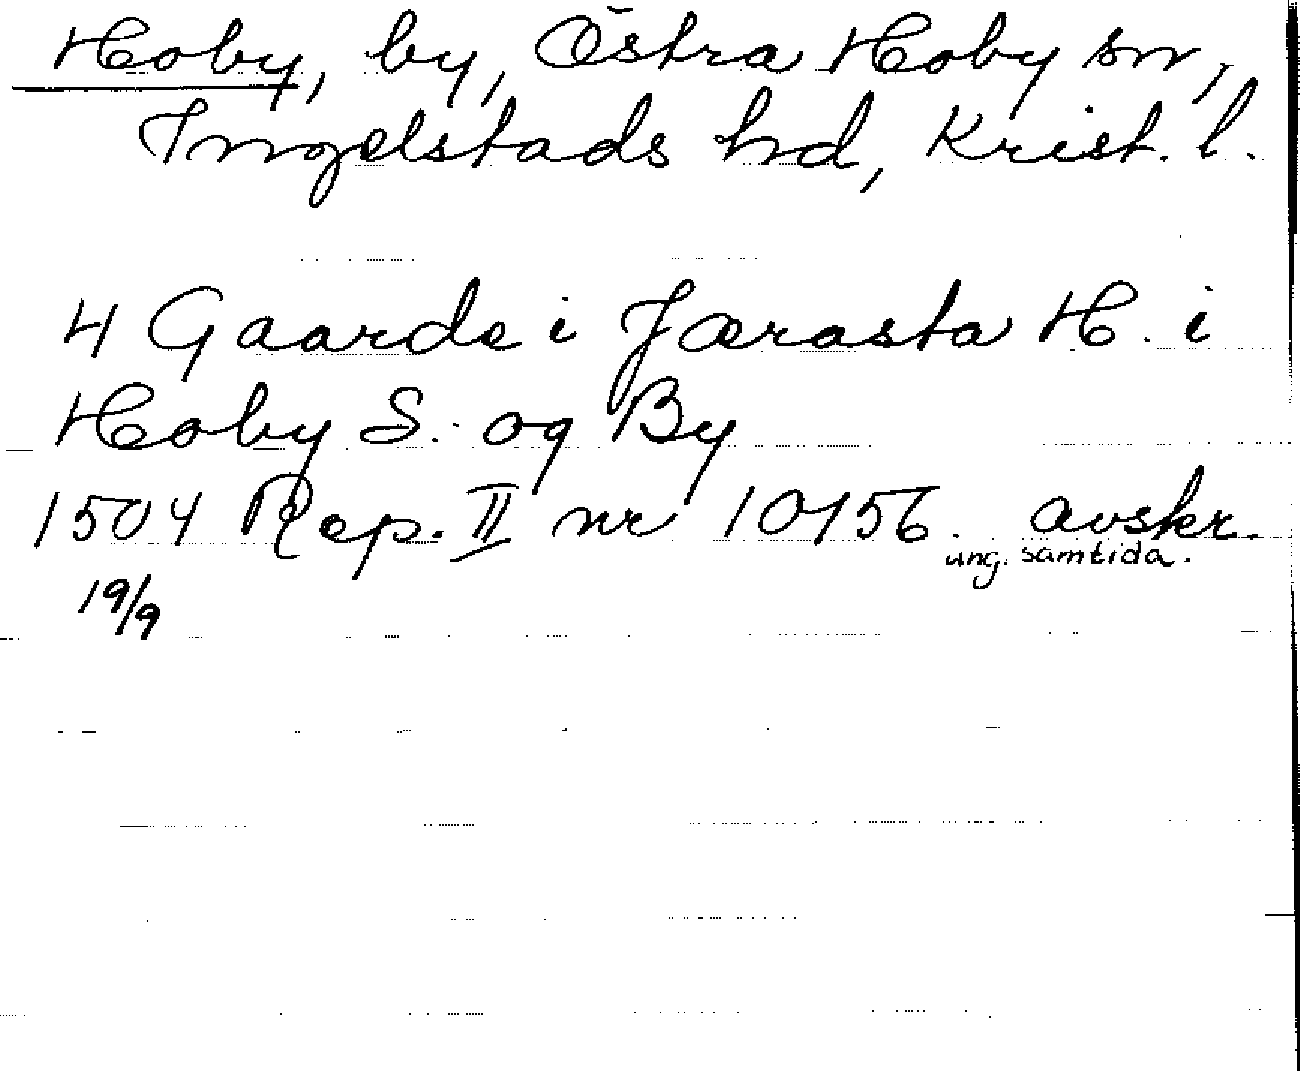 Hoby, by, Östra Hoby sn,
Ingelstads hd, Krist. l.
4 Gaarde i Jærasta H. i
Hoby S. og By
1504 Rep. II nr 10156. avskr.
ung. samtida.
19/9